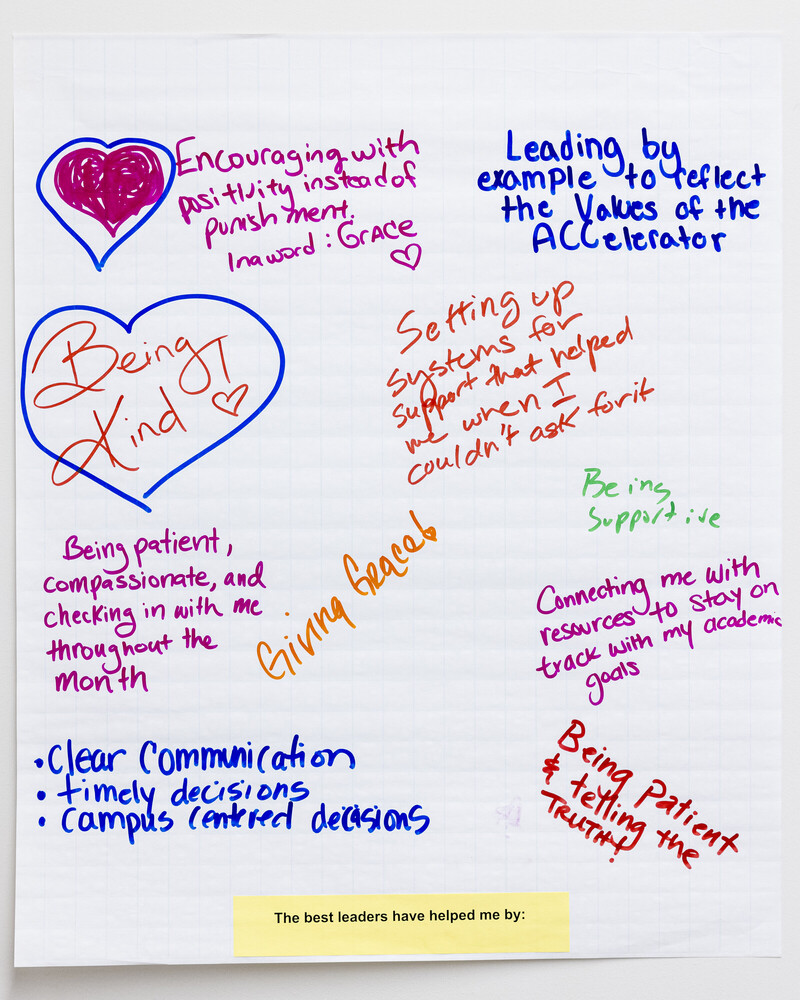 Encouraging with
positivity instead of
punishment.
In a word: GRACE
Leading by
example to reflect
the Values of the
ACCelerator
Being
Kind
Setting up
systems for
support that helped
me when I
couldn't ask for it
Being
Supportive
Being patient,
compassionate, and
checking in with me
throughout the
month
Giving Grace!
Connecting me with
resources to stay on
track with my academic
goals
• Clear Communication
• timely decisions
• Campus centered decisions
Being Patient
& telling the
TRUTH!
The best leaders have helped me by: